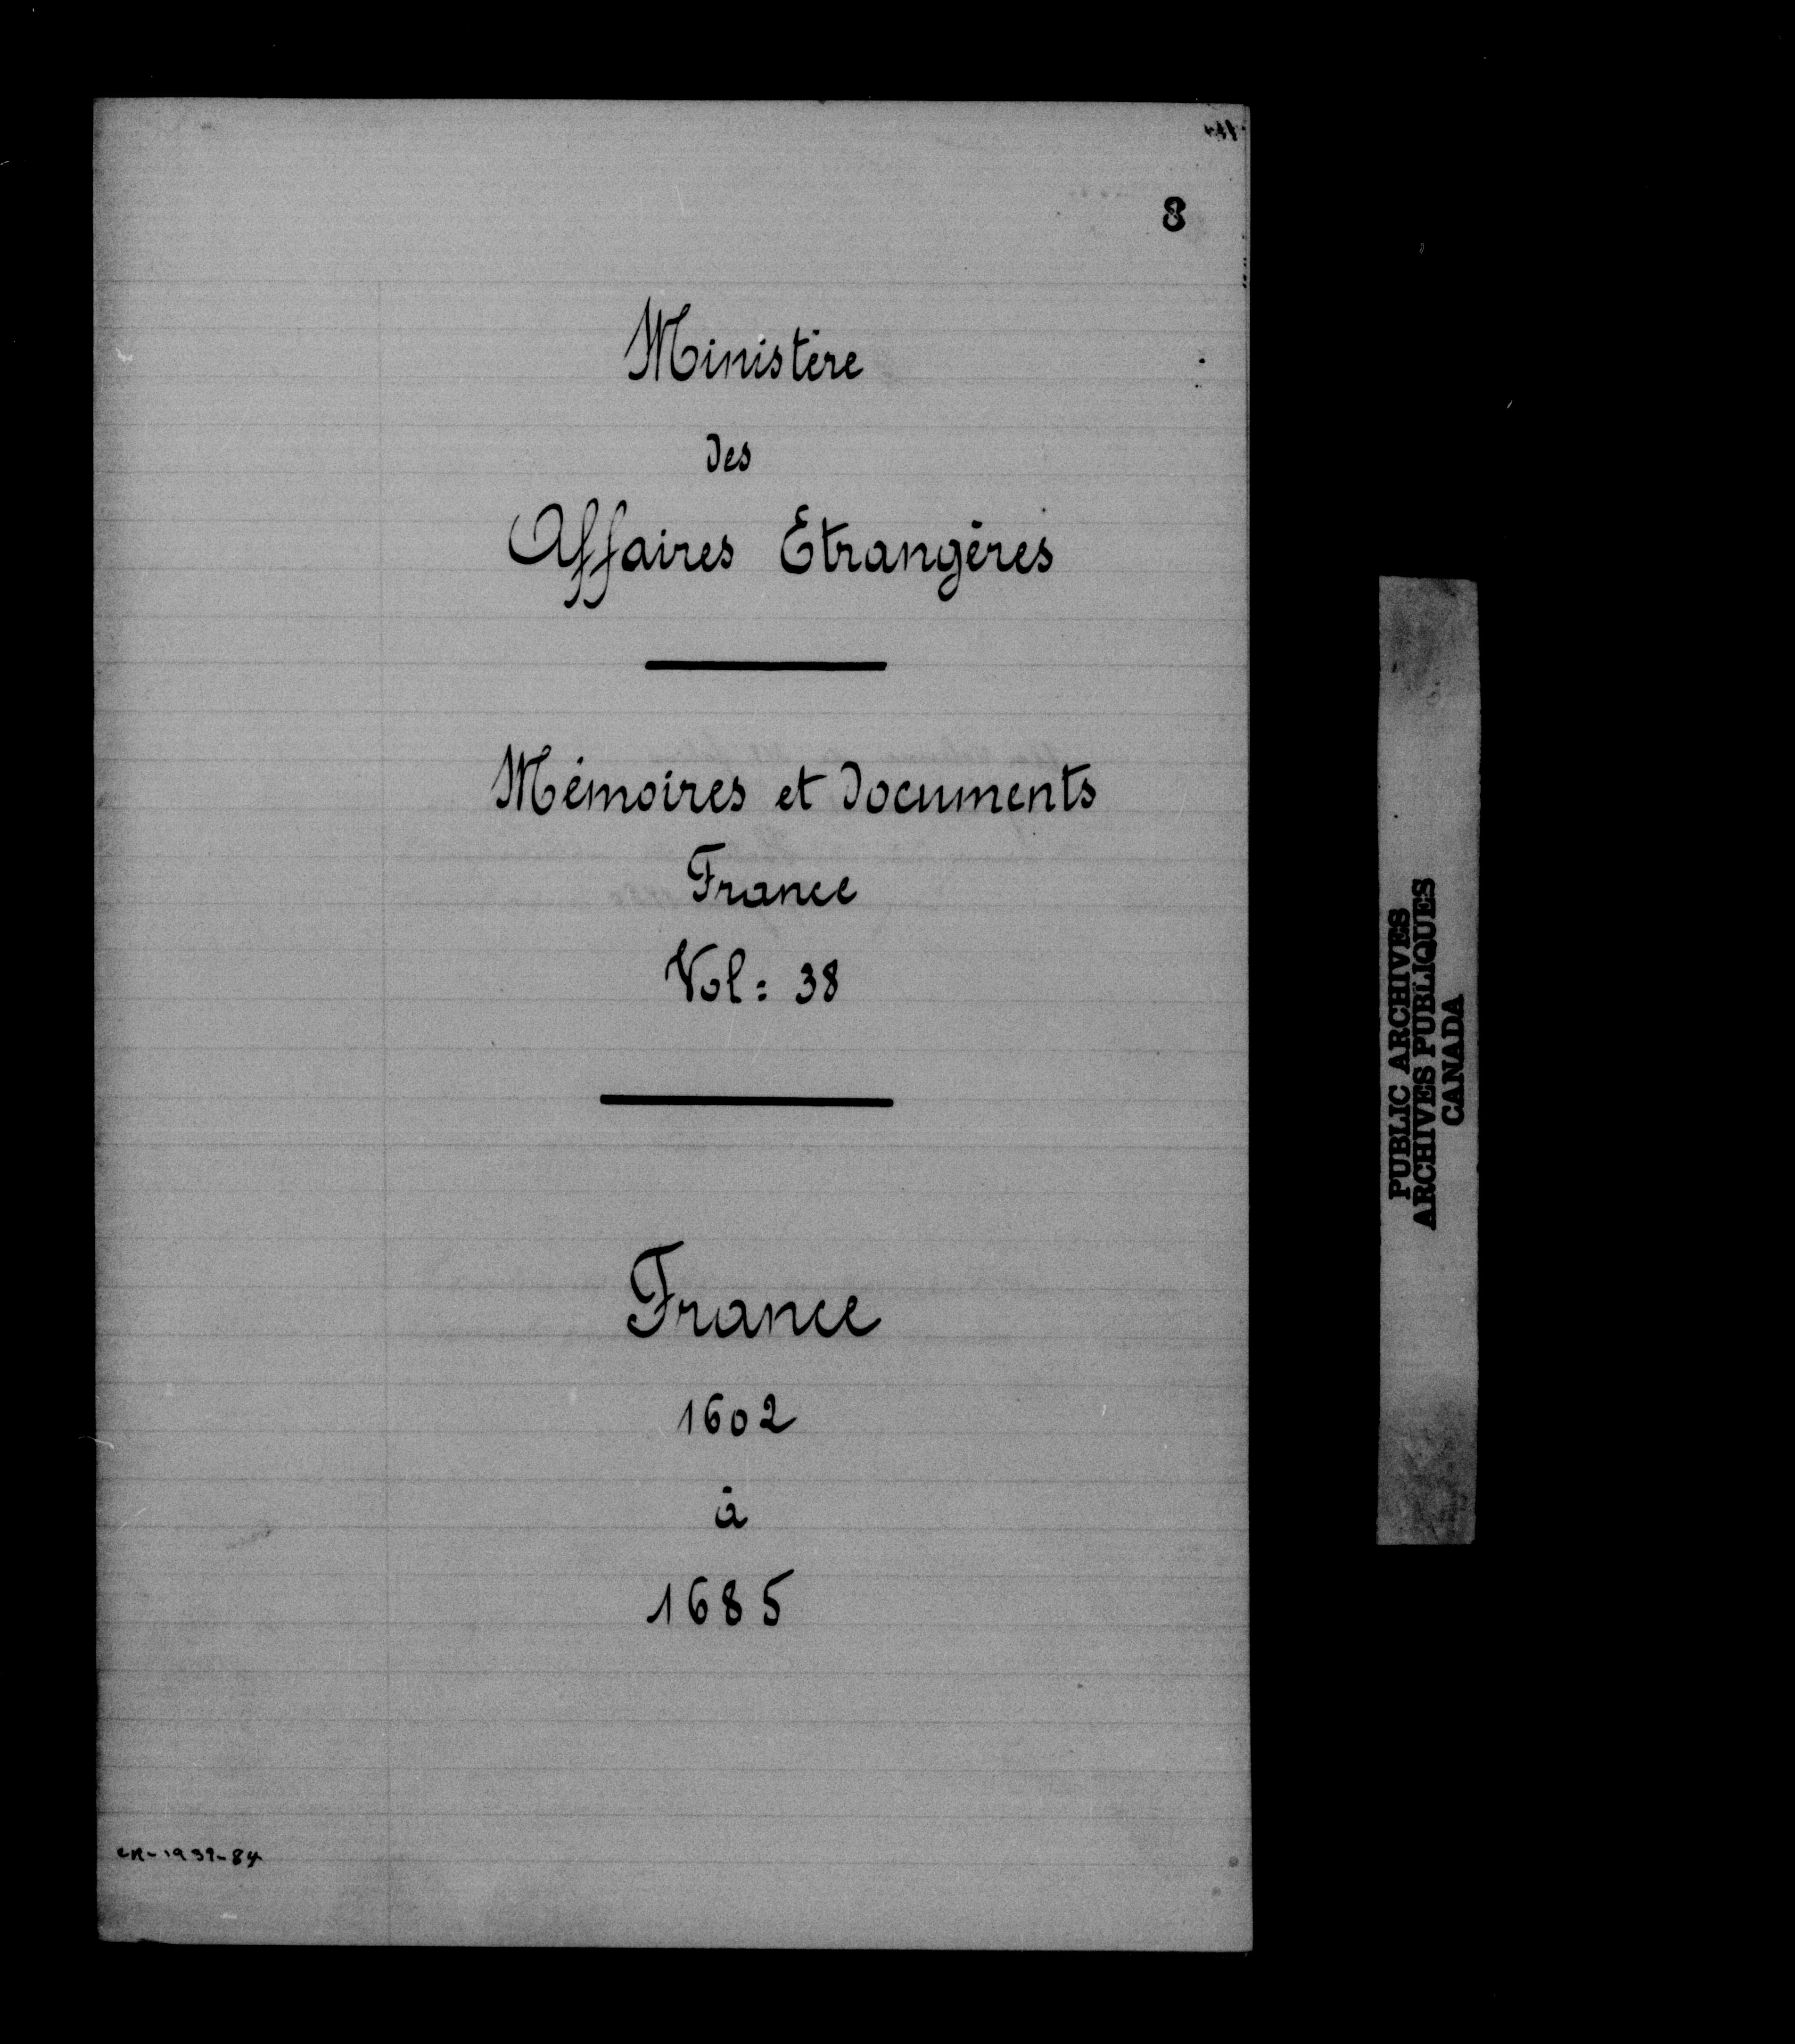 8
Ministère
des
Affaires Etrangères
Mémoires et Documents
France
Vol: 38
France
1602
à
1685
PUBLIC ARCHIVES
ARCHIVES PUBLIQUES
CANADA